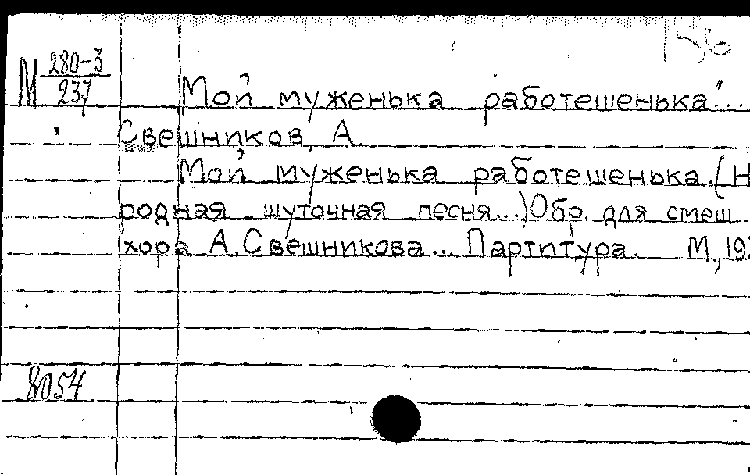 М 280-3
237
Мой муженька работешенька"...
Свешников, А.
Мой муженька работешенька. (Н
родная шуточная песня...) Обр. для смеш.
хора А. Свешникова... Партитура. М., 193
8054